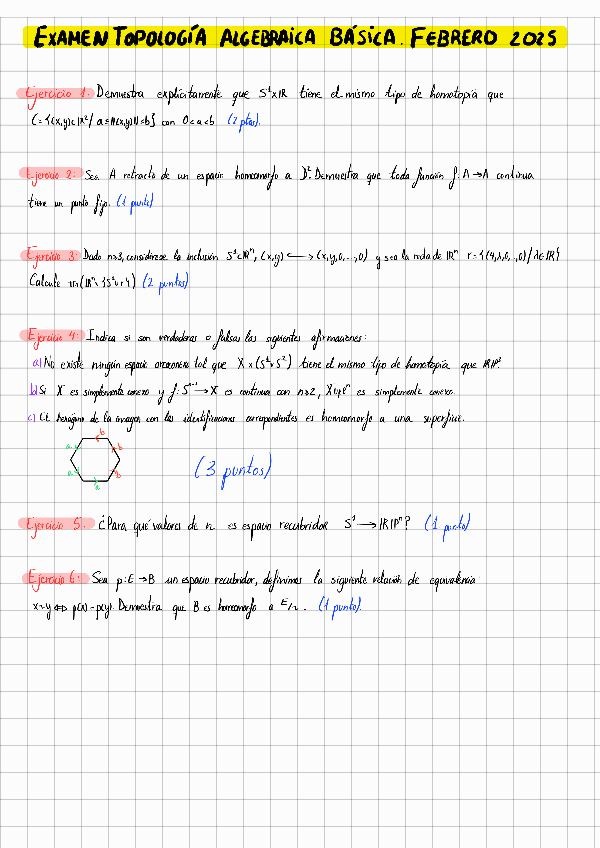 EXAMEN TOPOLOGÍA ALGEBRAICA BÁSICA. FEBRERO 2025
Ejercicio 1: Demuestra explícitamente que S¹xIR tiene el mismo tipo de homotopía que
C={(x,y)∈IR²/ a≤||(x,y)||≤b} con 0<a<b (2 ptos).
Ejercicio 2: Sea A retracto de un espacio homeomorfo a D². Demuestra que toda función f: A→A continua
tiene un punto fijo. (1 punto)
Ejercicio 3: Dado n≥3, considérese la inclusión S¹⊂IRⁿ, (x,y) ↪ (x,y,0,...,0) y sea la recta de IRⁿ r={(4,λ,0,...,0)/λ∈IR}
Calcule π₁(IRⁿ\{S¹∪r}) (2 puntos)
Ejercicio 4: Indica si son verdaderas o falsas las siguientes afirmaciones:
a) No existe ningún espacio arcoconexo tal que X x (S¹xS²) tiene el mismo tipo de homotopía que IRIP²
b) Si X es simplemente conexo y f: Sⁿ⁻¹→X es continua con n≥2, X∪eⁿ es simplemente conexo.
c) El hexágono de la imagen con las identificaciones correspondientes es homeomorfo a una superficie.
b
a b
a b
a
(3 puntos)
Ejercicio 5: ¿Para qué valores de n es espacio recubridor S¹→IRIPⁿ? (1 punto)
Ejercicio 6: Sea p: E→B un espacio recubridor, definimos la siguiente relación de equivalencia
x~y ⇔ p(x)=p(y). Demuestra que B es homeomorfo a E/~. (1 punto).